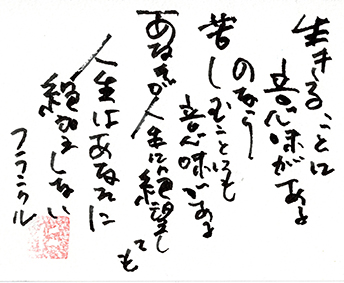 生きることに
意味がある
のなら
苦しむことにも
意味がある
あなたが人生に絶望し
ても
人生はあなたに
絶望しない
フランクル